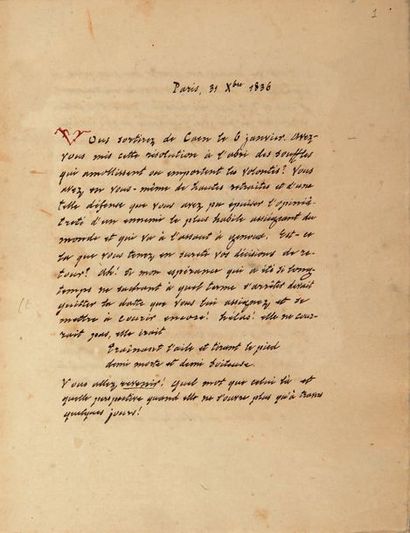 1
Paris, 31 Xbre 1836
Vous sortirez de Caen le 6 janvier. Avez-
vous mis cette résolution à l'abri des souffles
qui amollissent ou emportent les volontés? Vous
avez, en vous-même de hautes retraites et d'une
telle défense que vous avez pu épuiser l'opiniâ-
treté d'un ennemi le plus habile assiégeant du
monde et qui va à l'assaut à genoux! Est-ce
là que vous tenez en sureté vos décisions de re-
tour? Ah! Si mon espérance qui a été si long-
temps ne sachant à quel terme s'arrêter devait
quitter la date que vous lui assignez et se
mettre à courir encore! hélas! elle ne cour-
rait pas, elle irait
Traînant l'aile et tirant le pied
demi morte et demi boiteuse.
Vous allez revenir! Quel mot que celui là et
quelle perspective quand elle ne s'ouvre plus qu'à trans
quelques jours!